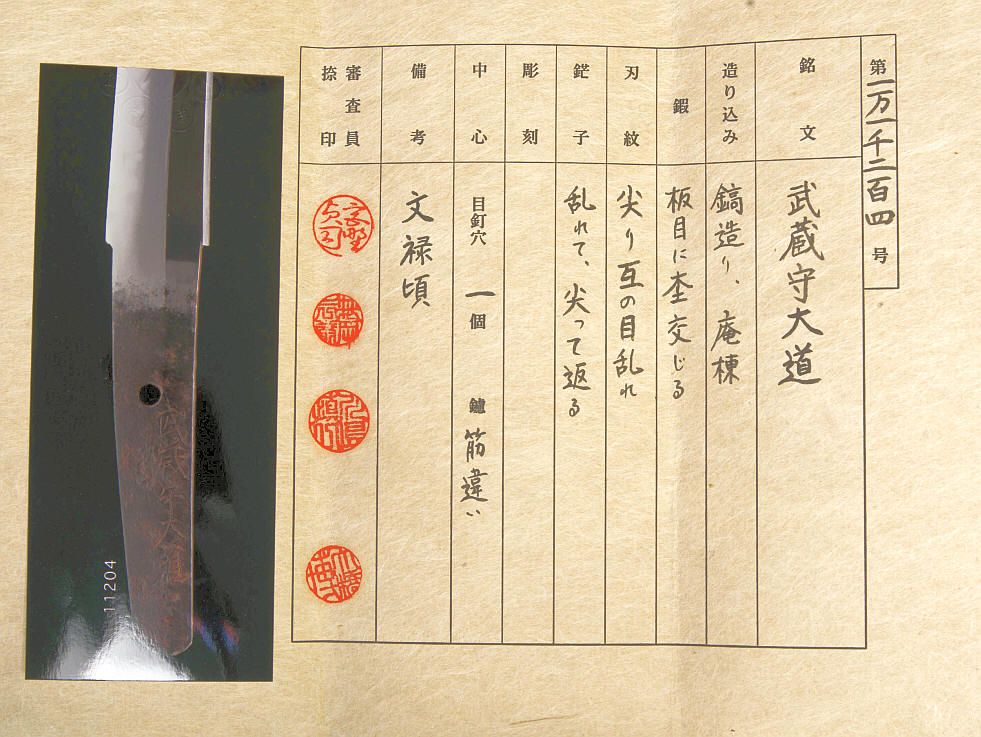 第一万一千二百四号
銘文
武蔵守大道
造り込み
鎬造り、庵棟
鍜
板目に杢交じる
刃紋
尖り互の目乱れ
鋩子
乱れて、尖って返る
彫刻
中心
目釘穴 一個 鑢 筋違い
備考
文禄頃
審査員
捺印
武蔵守大道
11204